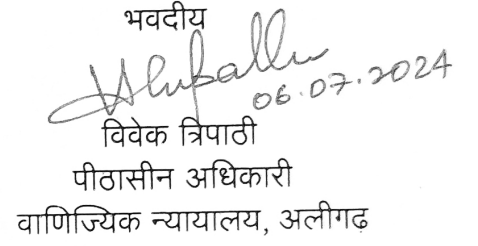 भवदीय
06.07.2024
विवेक त्रिपाठी
पीठासीन अधिकारी
वाणिज्यिक न्यायालय, अलीगढ़